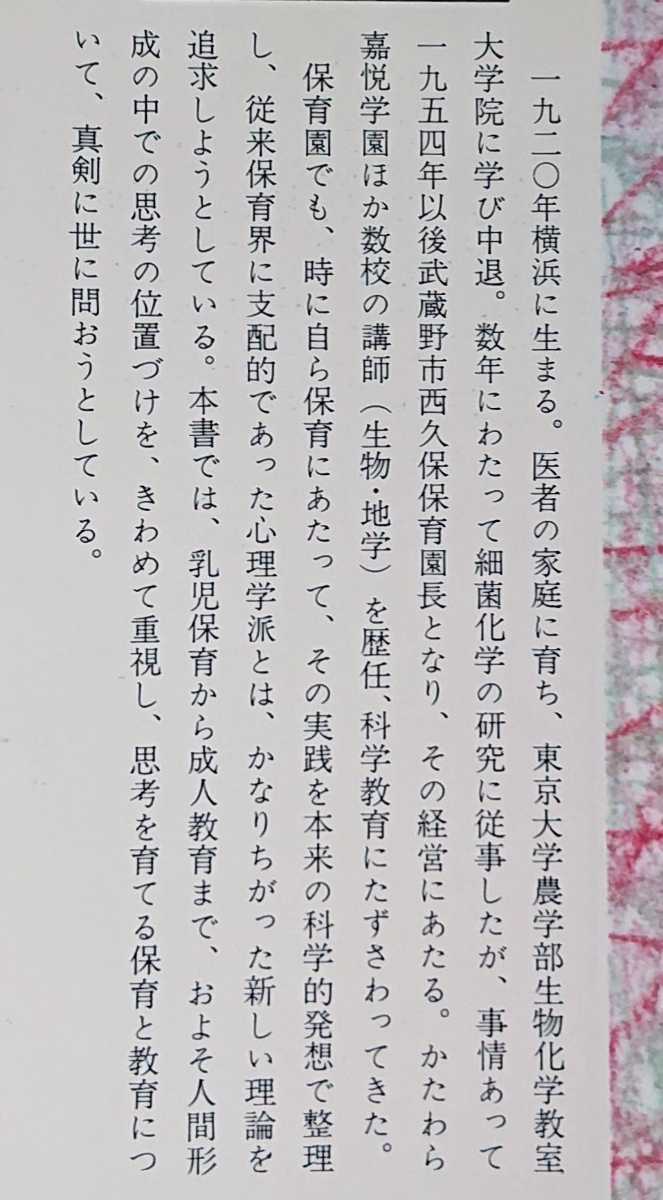 一九二〇年横浜に生まる。医者の家庭に育ち、東京大学農学部生物化学教室
大学院に学び中退。数年にわたって細菌化学の研究に従事したが、事情あって
一九五四年以後武蔵野市西久保保育園長となり、その経営にあたる。かたわら
嘉悦学園ほか数校の講師（生物・地学）を歴任、科学教育にたずさわってきた。
保育園でも、時に自ら保育にあたって、その実践を本来の科学的発想で整理
し、従来保育界に支配的であった心理学派とは、かなりちがった新しい理論を
追求しようとしている。本書では、乳児保育から成人教育まで、およそ人間形
成の中での思考の位置づけを、きわめて重視し、思考を育てる保育と教育につ
いて、真剣に世に問おうとしている。